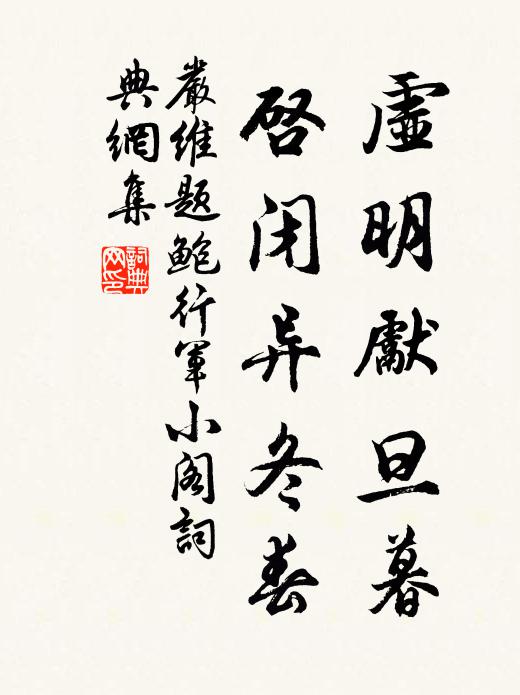 虛明獻旦暮
啓闭异冬春
嚴維題鮑行軍小阁詞
典網集
詞典
网印